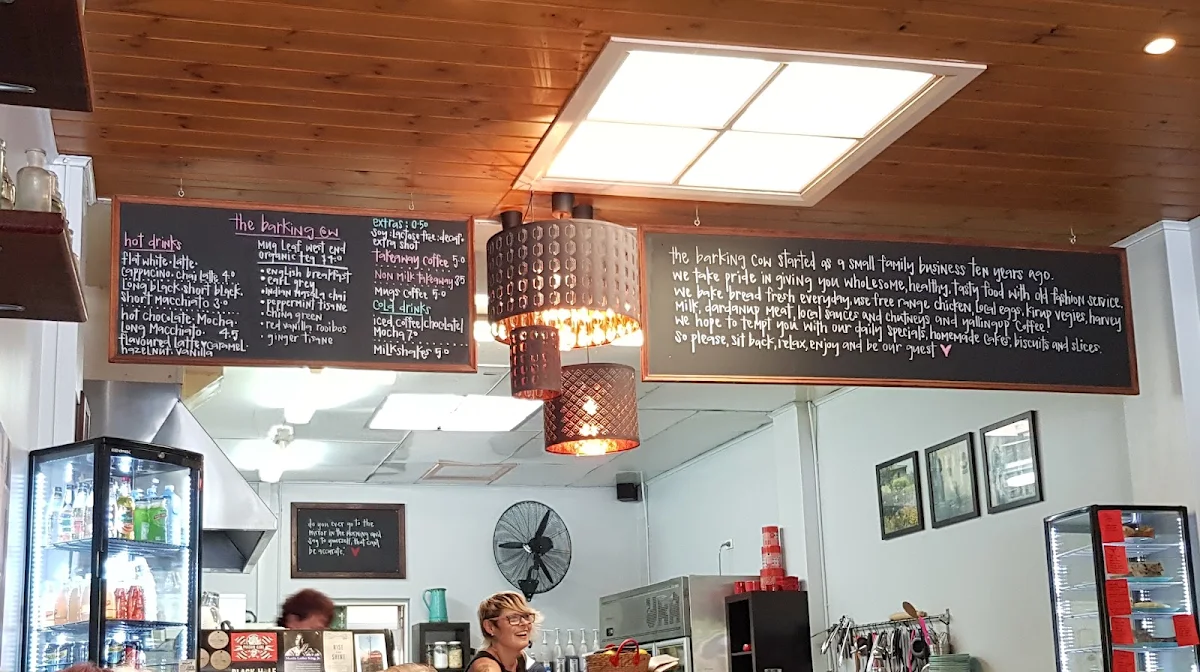 the barking cow
hot drinks
flat white • latte.
cappucino • chai latte 4.0
long black • short black.
short macchiato 3.0
hot chocolate • Mocha
long Macchiato. 4.5
flavoured latte ♥ caramel
hazelnut. vanilla
Mug Leaf west end
organic tea 4.0
• english breakfast
• earl grey
• indian masala chai
• peppermint tisane
• china green
• red vanilla rooibos
• ginger tisane
extras: 0.50
soy: lactose free: decaf.
extra shot
takeaway coffee 5.0
Non Milk takeaway 3.5
Mugs coffee 5.0
cold drinks
iced coffee/chocolate/
Mocha 7.0
Milkshakes 5.0
the barking cow started as a small family business ten years ago.
we take pride in giving you wholesome, healthy, tasty food with old fashion service.
we bake bread fresh everyday, use free range chicken, local eggs, kirup vegies, harvey
milk, dardanup meat, local sauces and chutneys and yallingup coffee!
we hope to tempt you with our daily specials, homemade cakes, biscuits and slices.
so please, sit back, relax, enjoy and be our guest ♥
do you ever go to the
mirror in the morning and
say to yourself, that can't
be accurate. ♥
SKIPA
BLACK MALE